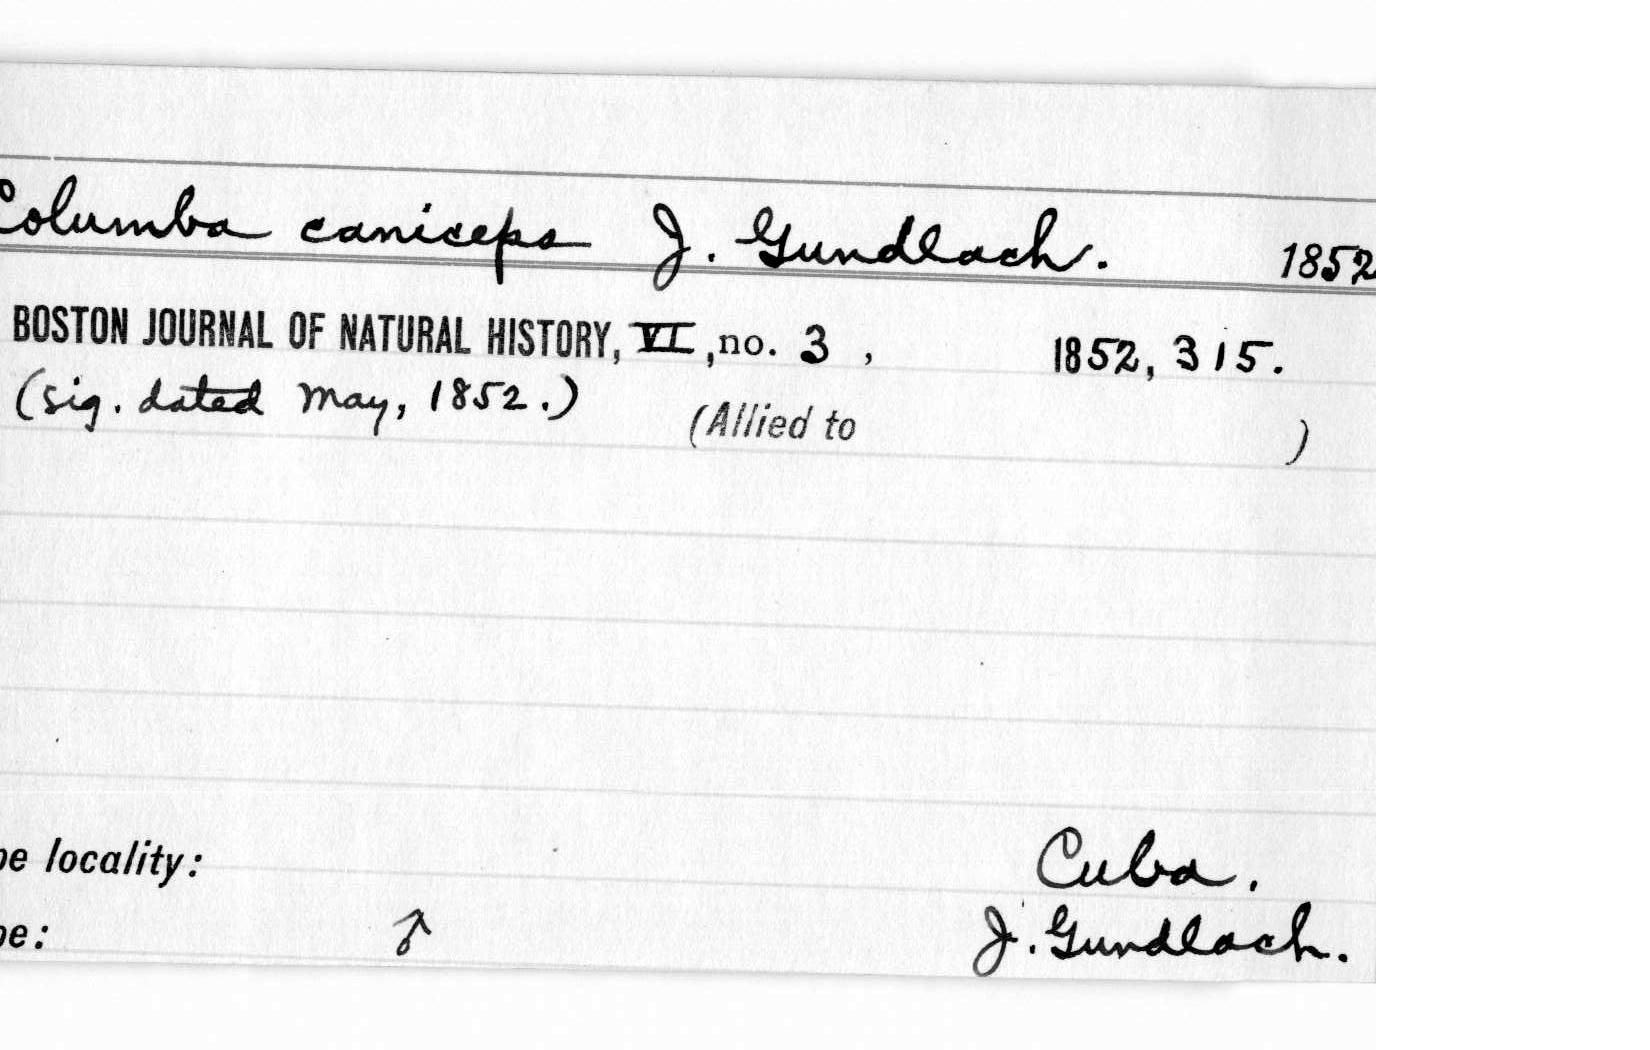 Columba caniceps J. Gundlach. 1852
BOSTON JOURNAL OF NATURAL HISTORY, VI, no. 3 , 1852, 315.
(sig. dated May, 1852.) (Allied to )
pe locality: Cuba.
pe: ♂ J. Gundlach.